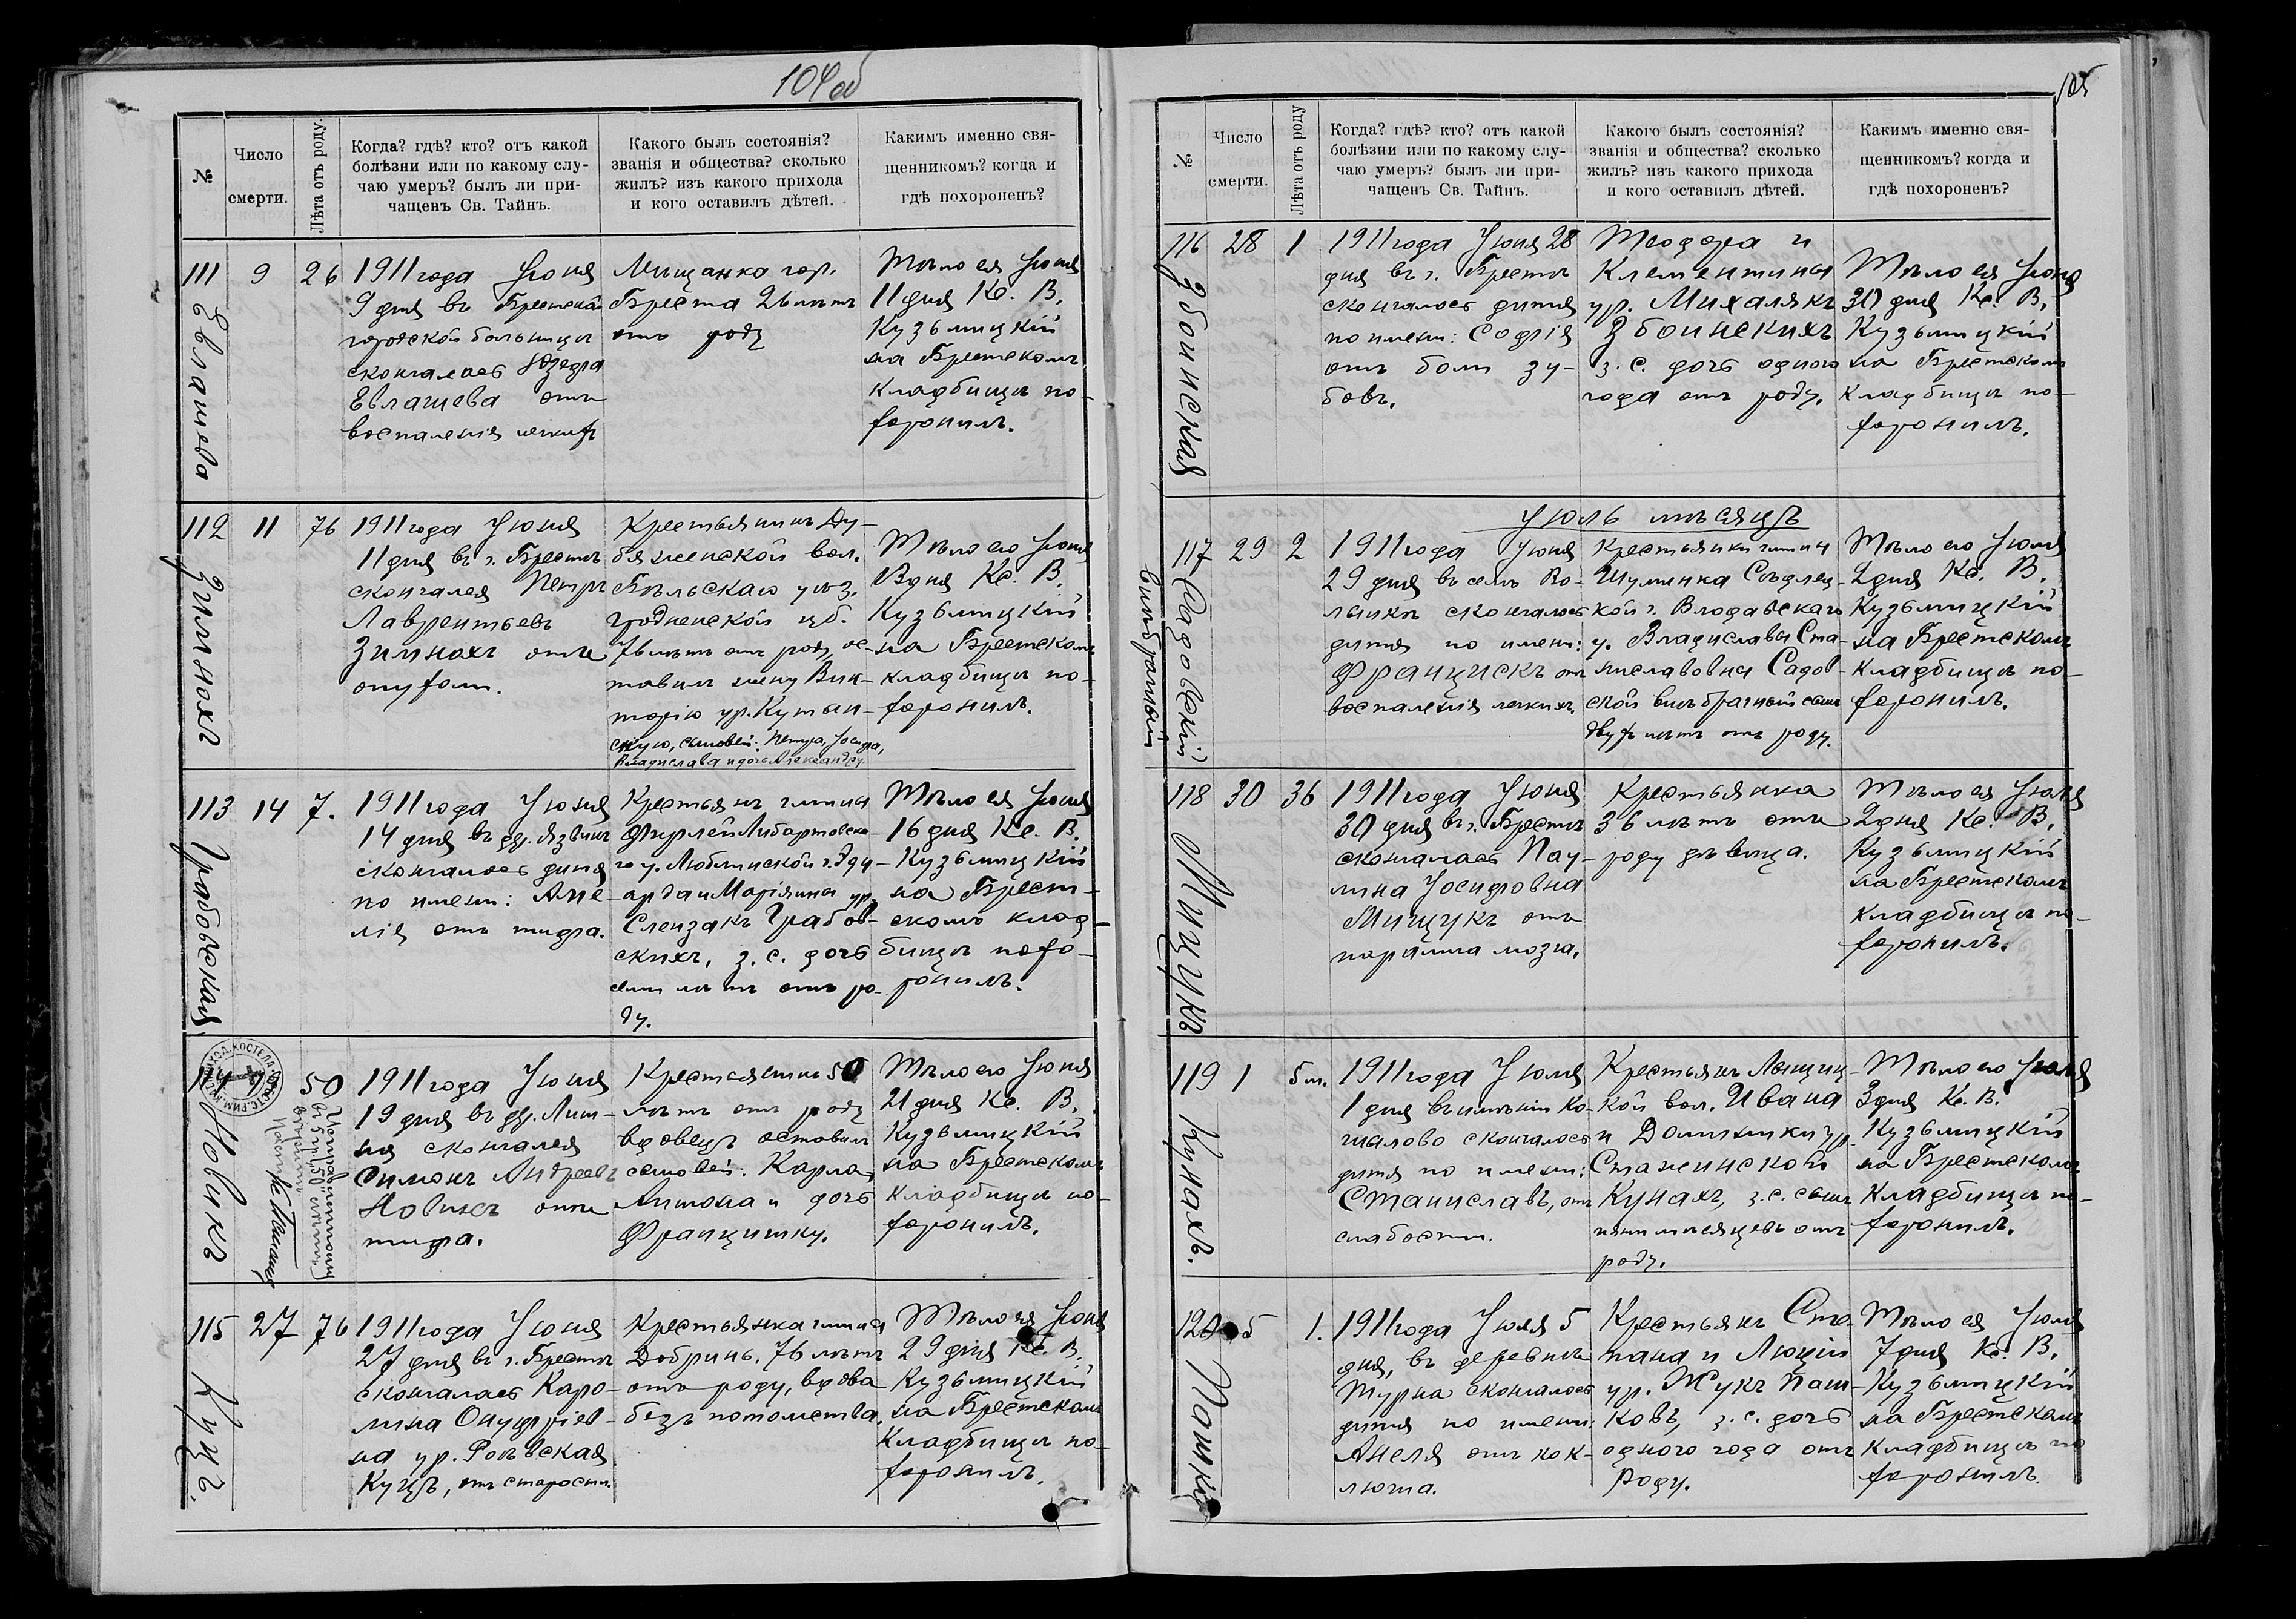 104об
№
Число
смерти.
Лѣта отъ роду.
Когда? гдѣ? кто? отъ какой
болѣзни или по какому слу-
чаю умеръ? былъ ли при-
чащенъ Св. Тайнъ.
Какого былъ состоянія?
званія и общества? сколько
жилъ? изъ какого прихода
и кого оставилъ дѣтей.
Какимъ именно свя-
щенникомъ? когда и
гдѣ похороненъ?
111
Евлашева
9
26
1911 года Іюня
9 дня въ Брестской
городской больницѣ
скончалась Юзефа
Евлашева отъ
воспаленія легкихъ
Мѣщанка гор.
Бреста 26 лѣтъ
отъ роду
Тѣло ея Іюня
11 дня Кс. В.
Кузьмицкій
на Брестскомъ
кладбищѣ по-
хоронилъ.
112
Зимнохъ
11
76
1911 года Іюня
11 дня въ г. Брестѣ
скончался Петръ
Лаврентьевъ
Зимнохъ отъ
опухоли.
Крестьянинъ Ду-
бяженской вол.
Бѣльскаго уѣз.
Гродненской губ.
76 лѣтъ отъ роду, ос-
тавилъ жену Вик-
торію ур. Кутын-
скую, сыновей: Петра, Іосифа,
Владислава и дочь Александру.
Тѣло его Іюня
13 дня Кс. В.
Кузьмицкій
на Брестскомъ
кладбищѣ по-
хоронилъ.
113
Грабовская
14
7.
1911 года Іюня
14 дня въ др. Язвинъ
скончалось дитя
по имени: Аме-
лія отъ тифа.
Крестьянъ гмины
Фирлей Любартовска-
го у. Люблинской г. Эду-
арда и Маріянны ур.
Слензакъ Грабов-
скихъ, з. с. дочь
семи лѣтъ отъ ро-
ду.
Тѣло ея Іюня
16 дня Кс. В.
Кузьмицкій
на Брест-
скомъ клад-
бищѣ похо-
ронилъ.
114
Новикъ
50
1911 года Іюня
19 дня въ др. Лит-
ня скончался
Симонъ Андреевъ
Новикъ отъ
тифа.
Крестьянинъ 50
лѣтъ отъ роду
вдовецъ оставилъ
сыновей: Карла,
Антона и дочь
Францишку.
Тѣло его Іюня
21 дня Кс. В.
Кузьмицкій
на Брестскомъ
кладбищѣ по-
хоронилъ.
115
Куцъ.
27
76
1911 года Іюня
27 дня въ г. Брестѣ
скончалась Каро-
лина Онуфріев-
на ур. Ровѣвская
Куцъ, отъ старости.
Крестьянка гмины
Добринь. 76 лѣтъ
отъ роду, вдова
безъ потомства.
Тѣло ея Іюня
29 дня Кс. В.
Кузьмицкій
на Брестскомъ
кладбищѣ по-
хоронилъ.
105
№
Число
смерти.
Лѣта отъ роду
Когда? гдѣ? кто? отъ какой
болѣзни или по какому слу-
чаю умеръ? былъ ли при-
чащенъ Св. Тайнъ.
Какого былъ состоянія?
званія и общества? сколько
жилъ? изъ какого прихода
и кого оставилъ дѣтей.
Какимъ именно свя-
щенникомъ? когда и
гдѣ похороненъ?
116
Збоинская
28
1
1911 года Іюня 28
дня въ г. Брестѣ
скончалось дитя
по имени: Софія
отъ боли зу-
бовъ.
Теофора и
Клементины
ур. Михалякъ
Збоинскихъ
з. с. дочь одного
года отъ роду.
Тѣло ея Іюня
30 дня Кс. В.
Кузьмицкій
на Брестскомъ
кладбищѣ по-
хоронилъ.
Іюль мѣсяцъ
117
(Садовскій)
внѣбрачный
29
2
1911 года Іюня
29 дня въ селѣ Во-
лынкѣ скончалось
дитя по имени:
Францискъ отъ
воспаленія легкихъ.
Крестьянки гмины
Шуминка Сѣдлец-
кой г. Влодавскаго
у. Владиславы Ста-
ниславовны Садов-
ской внѣбрачный сынъ
двухъ лѣтъ отъ роду.
Тѣло его Іюля
2 дня Кс. В.
Кузьмицкій
на Брестскомъ
кладбищѣ по-
хоронилъ.
118
Мицукъ
30
36
1911 года Іюня
30 дня въ г. Брестѣ
скончалась Пау-
лина Іосифовна
Мицукъ отъ
паралича мозга.
Крестьянка
36 лѣтъ отъ
роду дѣвица.
Тѣло ея Іюля
2 дня Кс. В.
Кузьмицкій
на Брестскомъ
кладбищѣ по-
хоронилъ.
119
Кунахъ.
1
5 м.
1911 года Іюля
1 дня въ имѣніи Ко-
чалово скончалось
дитя по имени:
Станиславъ, отъ
слабости.
Крестьянъ Лыщиц-
кой вол. Ивана
и Доминики ур.
Стаженской
Кунахъ, з. с. сынъ
пяти мѣсяцевъ отъ
роду.
Тѣло его Іюля
3 дня Кс. В.
Кузьмицкій
на Брестскомъ
кладбищѣ по-
хоронилъ.
120
5
1.
1911 года Іюля 5
дня, въ деревнѣ
Турна скончалось
дитя по имени:
Анеля отъ кок-
люша.
Крестьянъ Сте-
пана и Люціи
ур. Жукъ Паш-
ковъ, з. с. дочь
одного года отъ
роду.
Тѣло ея Іюля
7 дня Кс. В.
Кузьмицкій
на Брестскомъ
кладбищѣ по
хоронилъ.